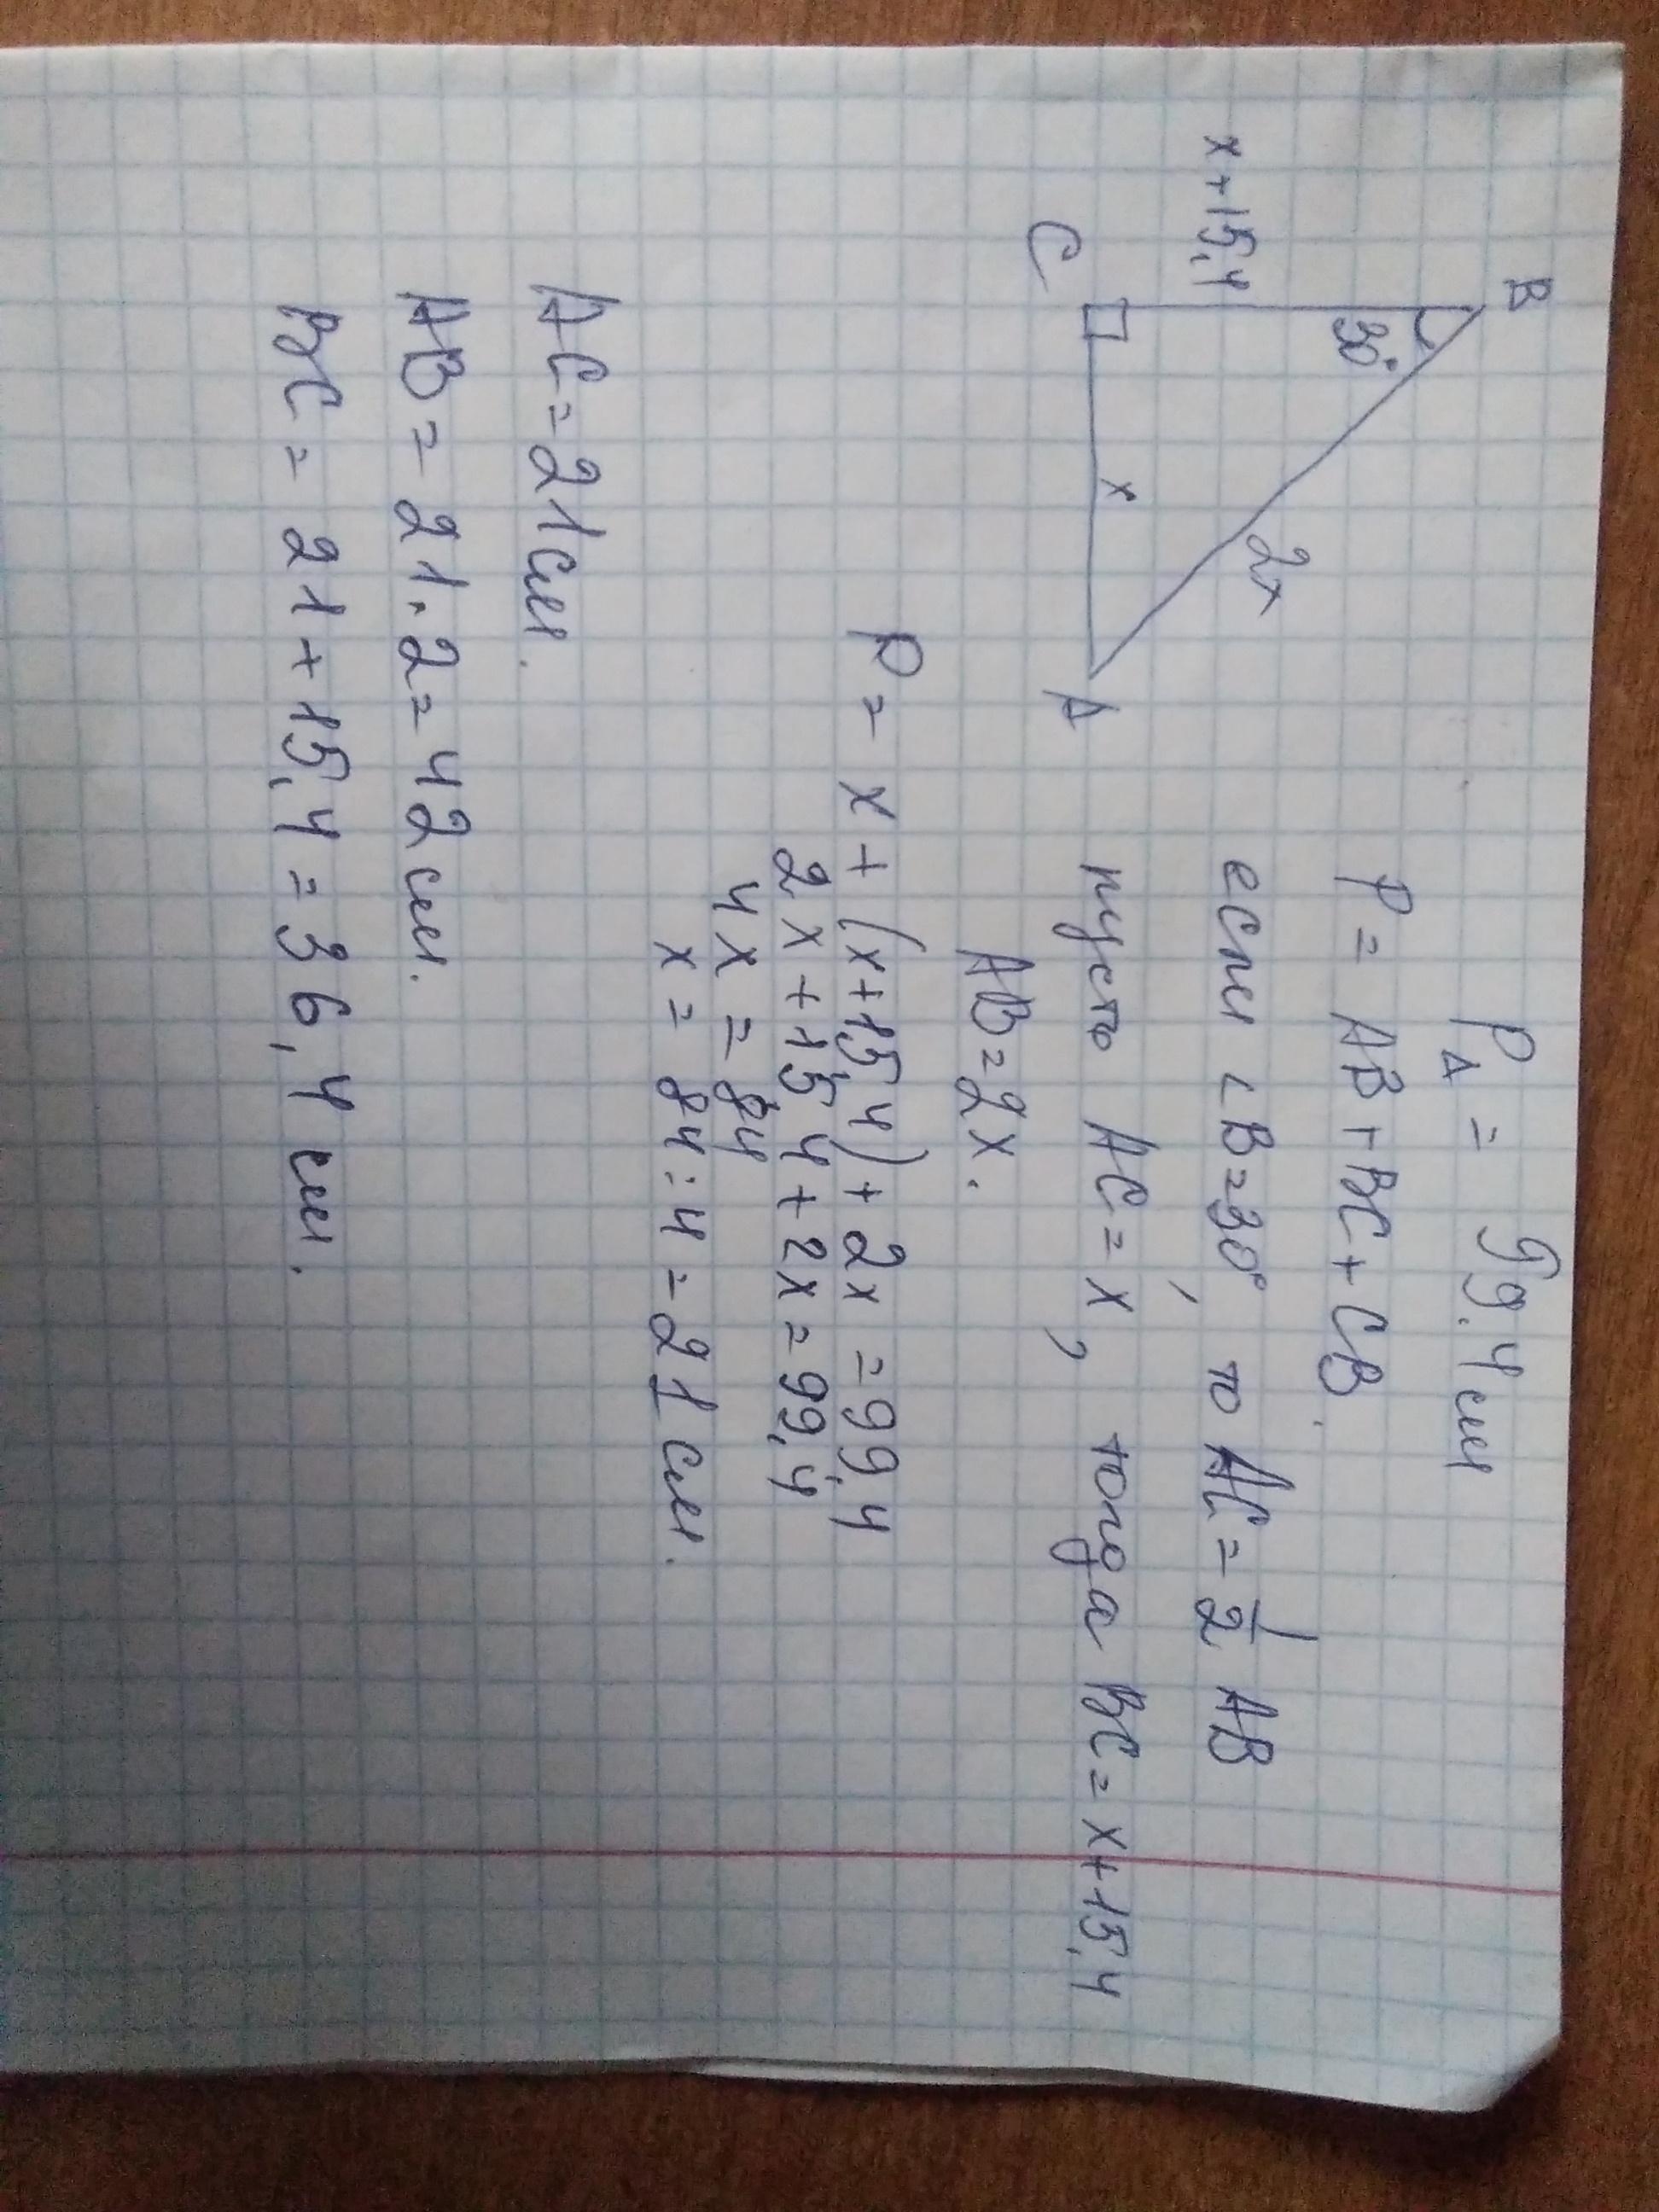 P△ = 99.4 см
B
P = AB + BC + CB.
x+15,4
30°
2x
если ∠B=30°, то AC = 1/2 AB
x
C
A
пусть AC = x, тогда BC = x+15,4
AB = 2x.
P = x + (x+15,4) + 2x = 99,4
2x + 15,4 + 2x = 99,4
4x = 84
x = 84 : 4 = 21 см.
AC = 21 см.
AB = 21 · 2 = 42 см.
BC = 21 + 15,4 = 36,4 см.